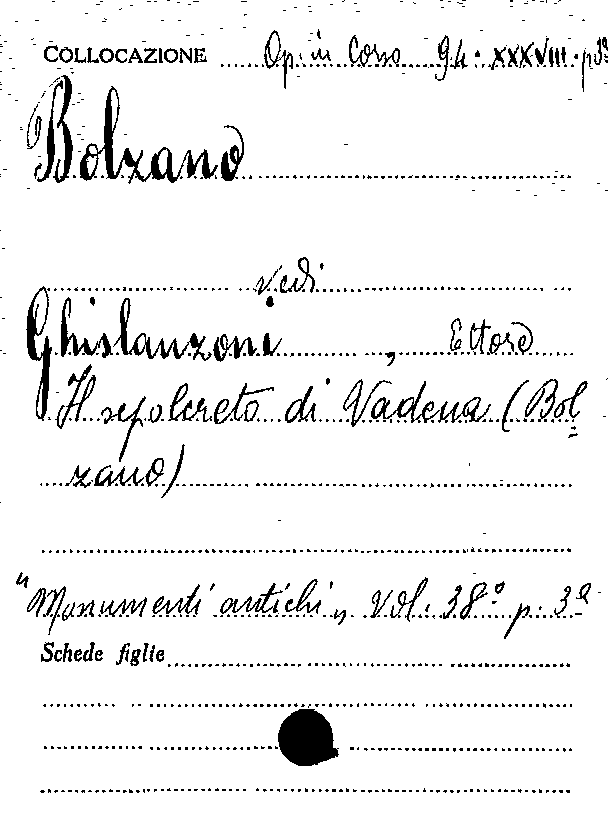 COLLOCAZIONE Op. in Corso 94. XXXVIII. p 3ª
Bolzano
vedi
Ghislanzoni, Ettore
Il sepolcreto di Vadena (Bol=
zano)
"Monumenti antichi„ Vol. 38° p. 3ª
Schede figlie